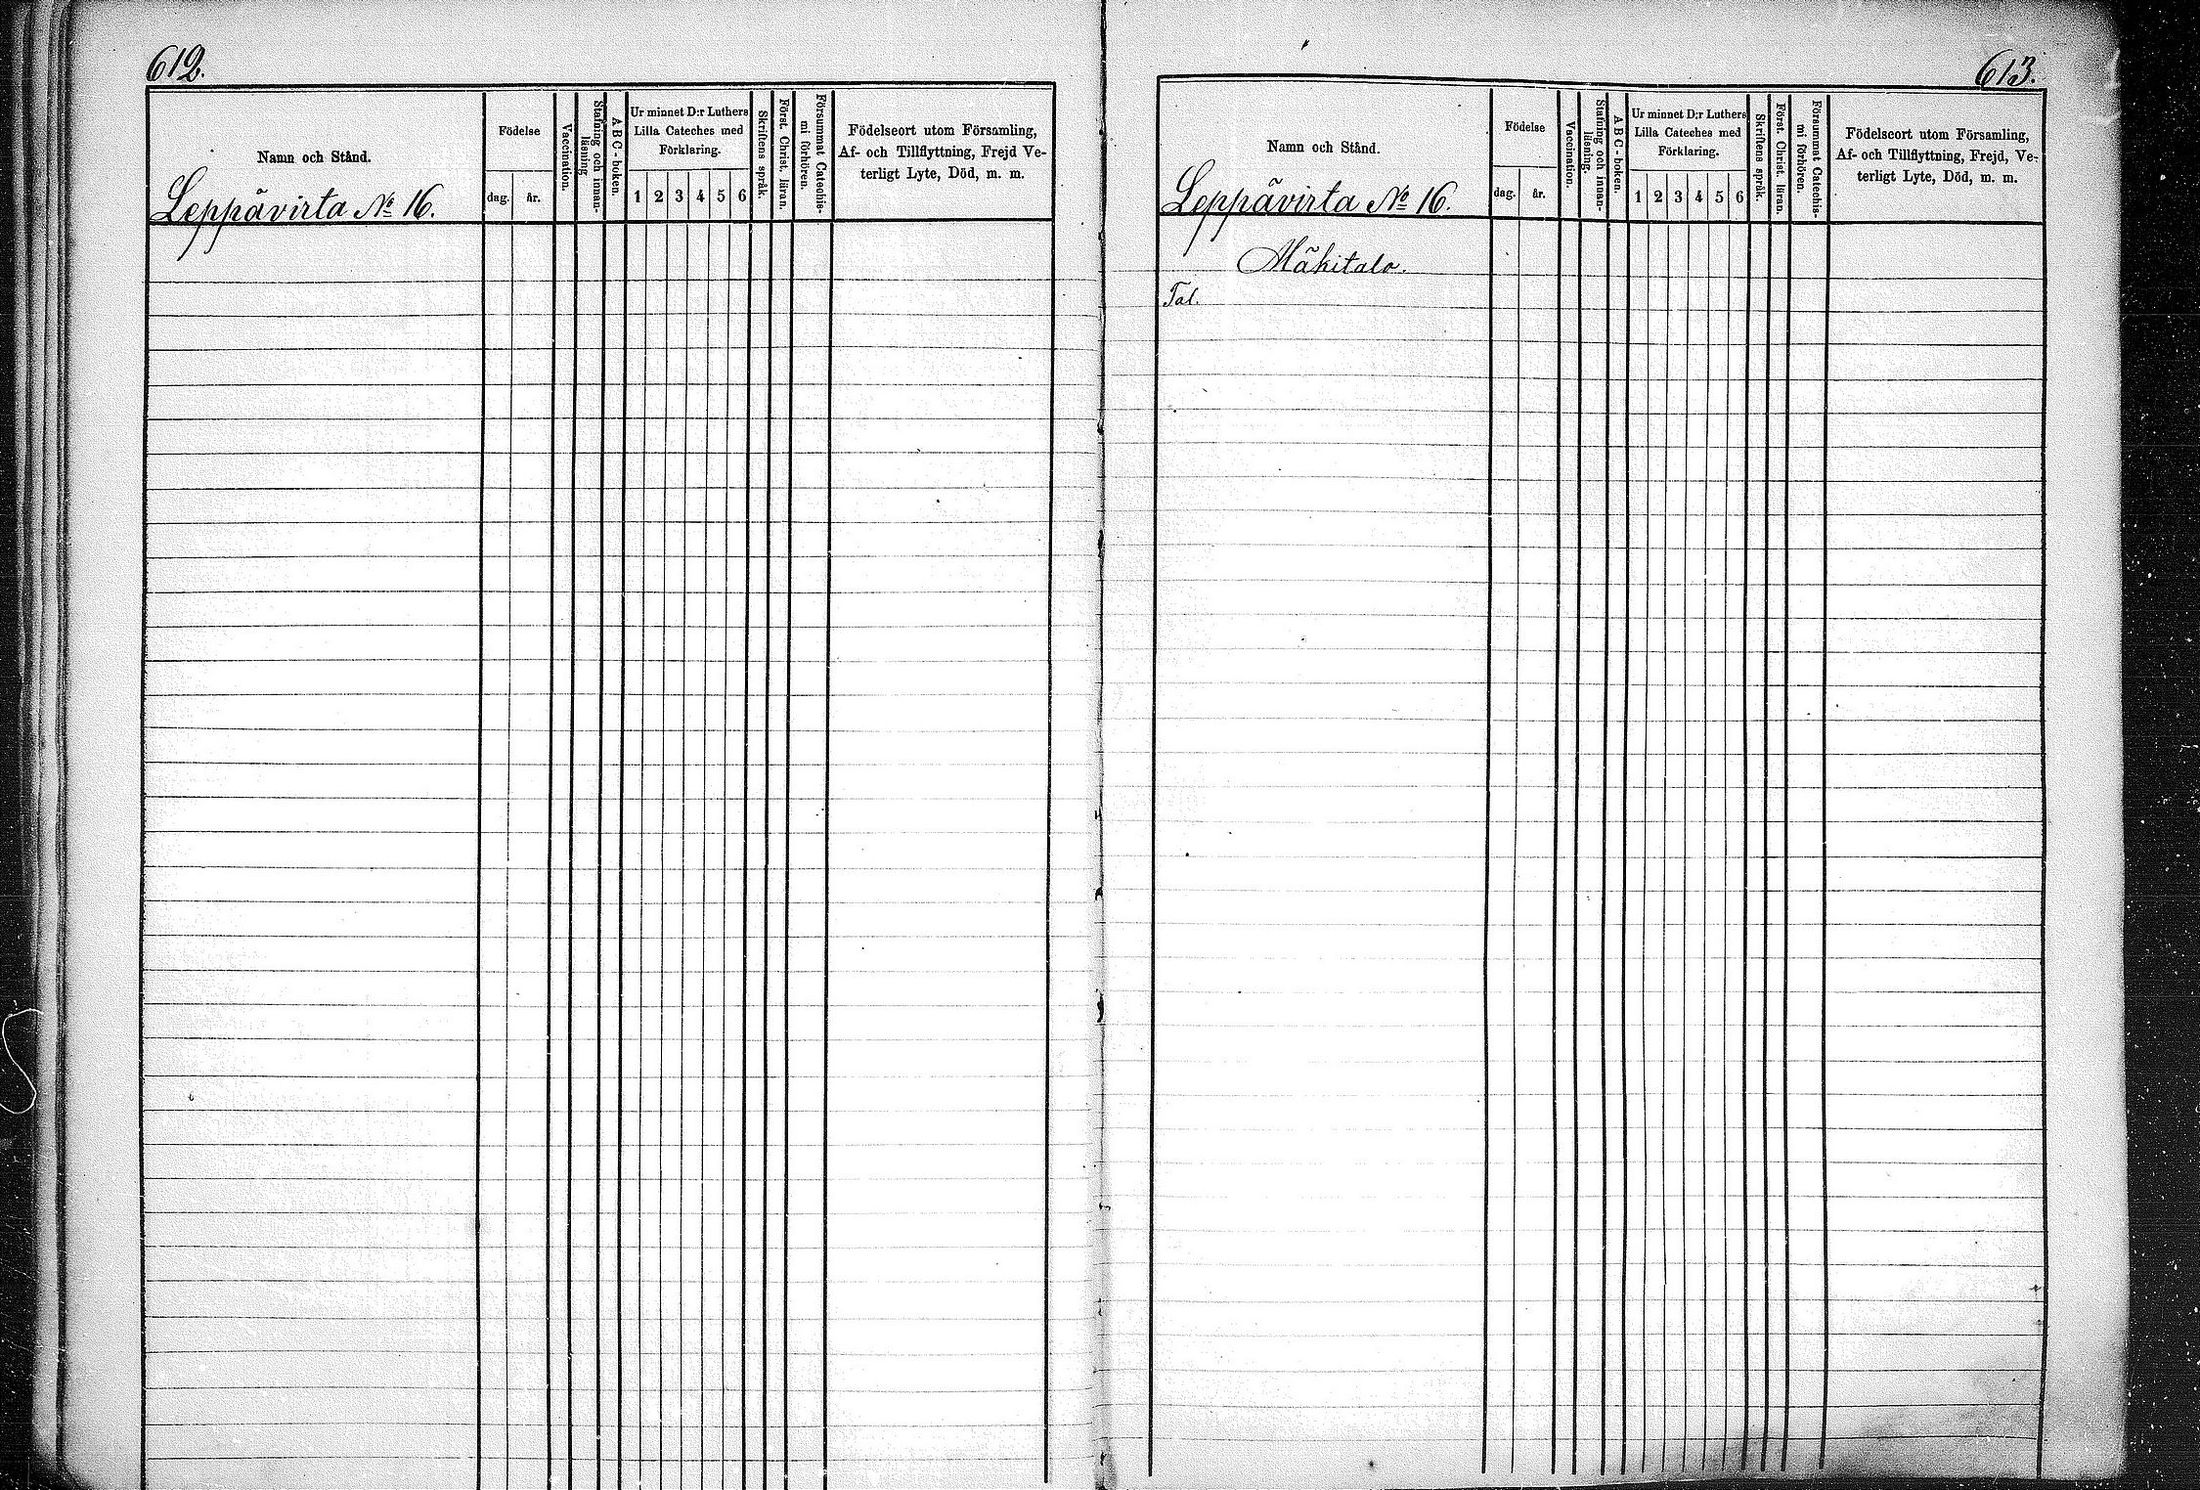 612.
Namn och Stånd.
Leppävirta No 16.
Födelse
dag.
år.
Vaccination.
Stafning och innan-
läsning
A B C - boken.
Ur minnet D:r Luthers
Lilla Cateches med
Förklaring.
1 2 3 4 5 6
Skriftens språk.
Först. Christ. läran.
Försummat Catechis-
mi förhören.
Födelseort utom Församling,
Af- och Tillflyttning, Frejd Ve-
terligt Lyte, Död, m. m.
613.
Namn och Stånd.
Leppävirta No 16.
Födelse
dag.
år.
Vaccination.
Stafning och innan-
läsning.
A B C - boken.
Ur minnet D:r Luthers
Lilla Cateches med
Förklaring.
1 2 3 4 5 6
Skriftens språk.
Först. Christ. läran.
Försummat Catechis-
mi förhören.
Födelseort utom Församling,
Af- och Tillflyttning, Frejd, Ve-
terligt Lyte, Död, m. m.
Mäkitalo.
Tal.